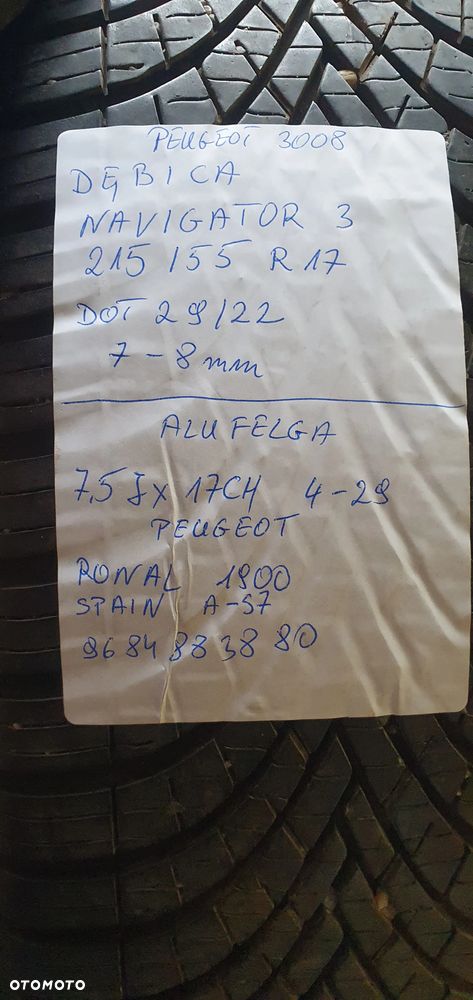 PEUGEOT 3008
DĘBICA
NAVIGATOR 3
215/55 R17
DOT 29/22
7-8mm
ALUFELGA
7,5Jx17CH 4-29
PEUGEOT
RONAL 1900
SPAIN A-57
9684883880
OTOMOTO